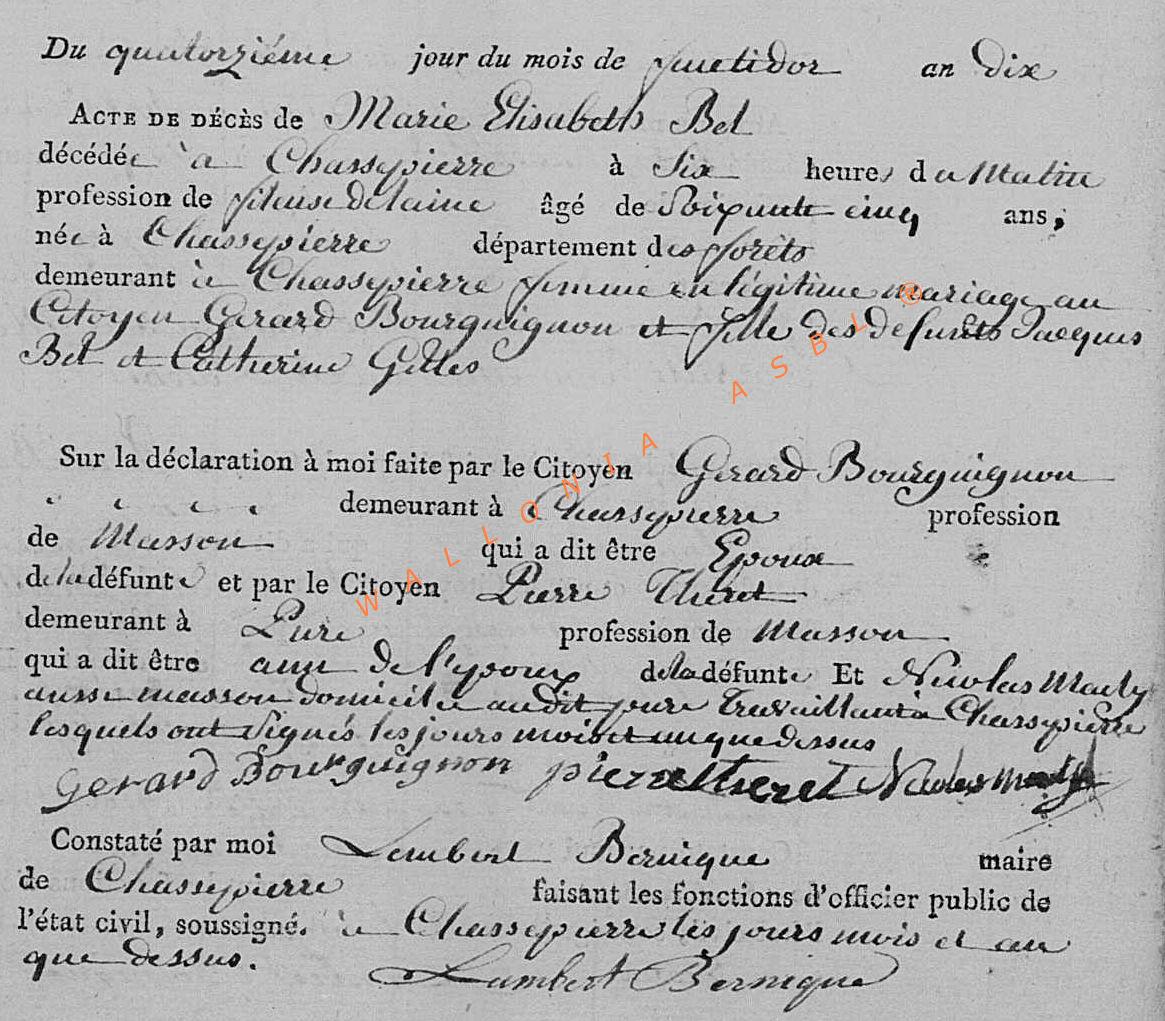 Du quatorziéme jour du mois de fructidor an Dix
ACTE DE DÉCÈS de Marie Elisabeth Bel
décédée à Chassepierre à Six heures du Matin
profession de fileuse de laine âgé de Soixante cinq ans,
née à Chassepierre département des forèts
demeurant à Chassepierre femme en légitime mariage au
Citoyen Gerard Bourguignon et fille des defunts Jacques
Bel et Catherine Gilles
Sur la déclaration à moi faite par le Citoyen Gerard Bourguignon
demeurant à Chassepierre profession
de Masson qui a dit être Epoux
de la défunte et par le Citoyen Pierre Theret
demeurant à Pure profession de Masson
qui a dit être ami de l'epoux de la défunte Et Nicolas
aussi masson domicilié audit pure travaillant à Chassepierre
lesquels ont Signés les jours mois et an que dessus
Gerard Bourguignon pierre theret Nicolas
Constaté par moi Lambert Bernique maire
de Chassepierre faisant les fonctions d'officier public de
l'état civil, soussigné. à Chassepierre les jours mois et an
que dessus.
Lambert Bernique
WALLONIA ASBL ®